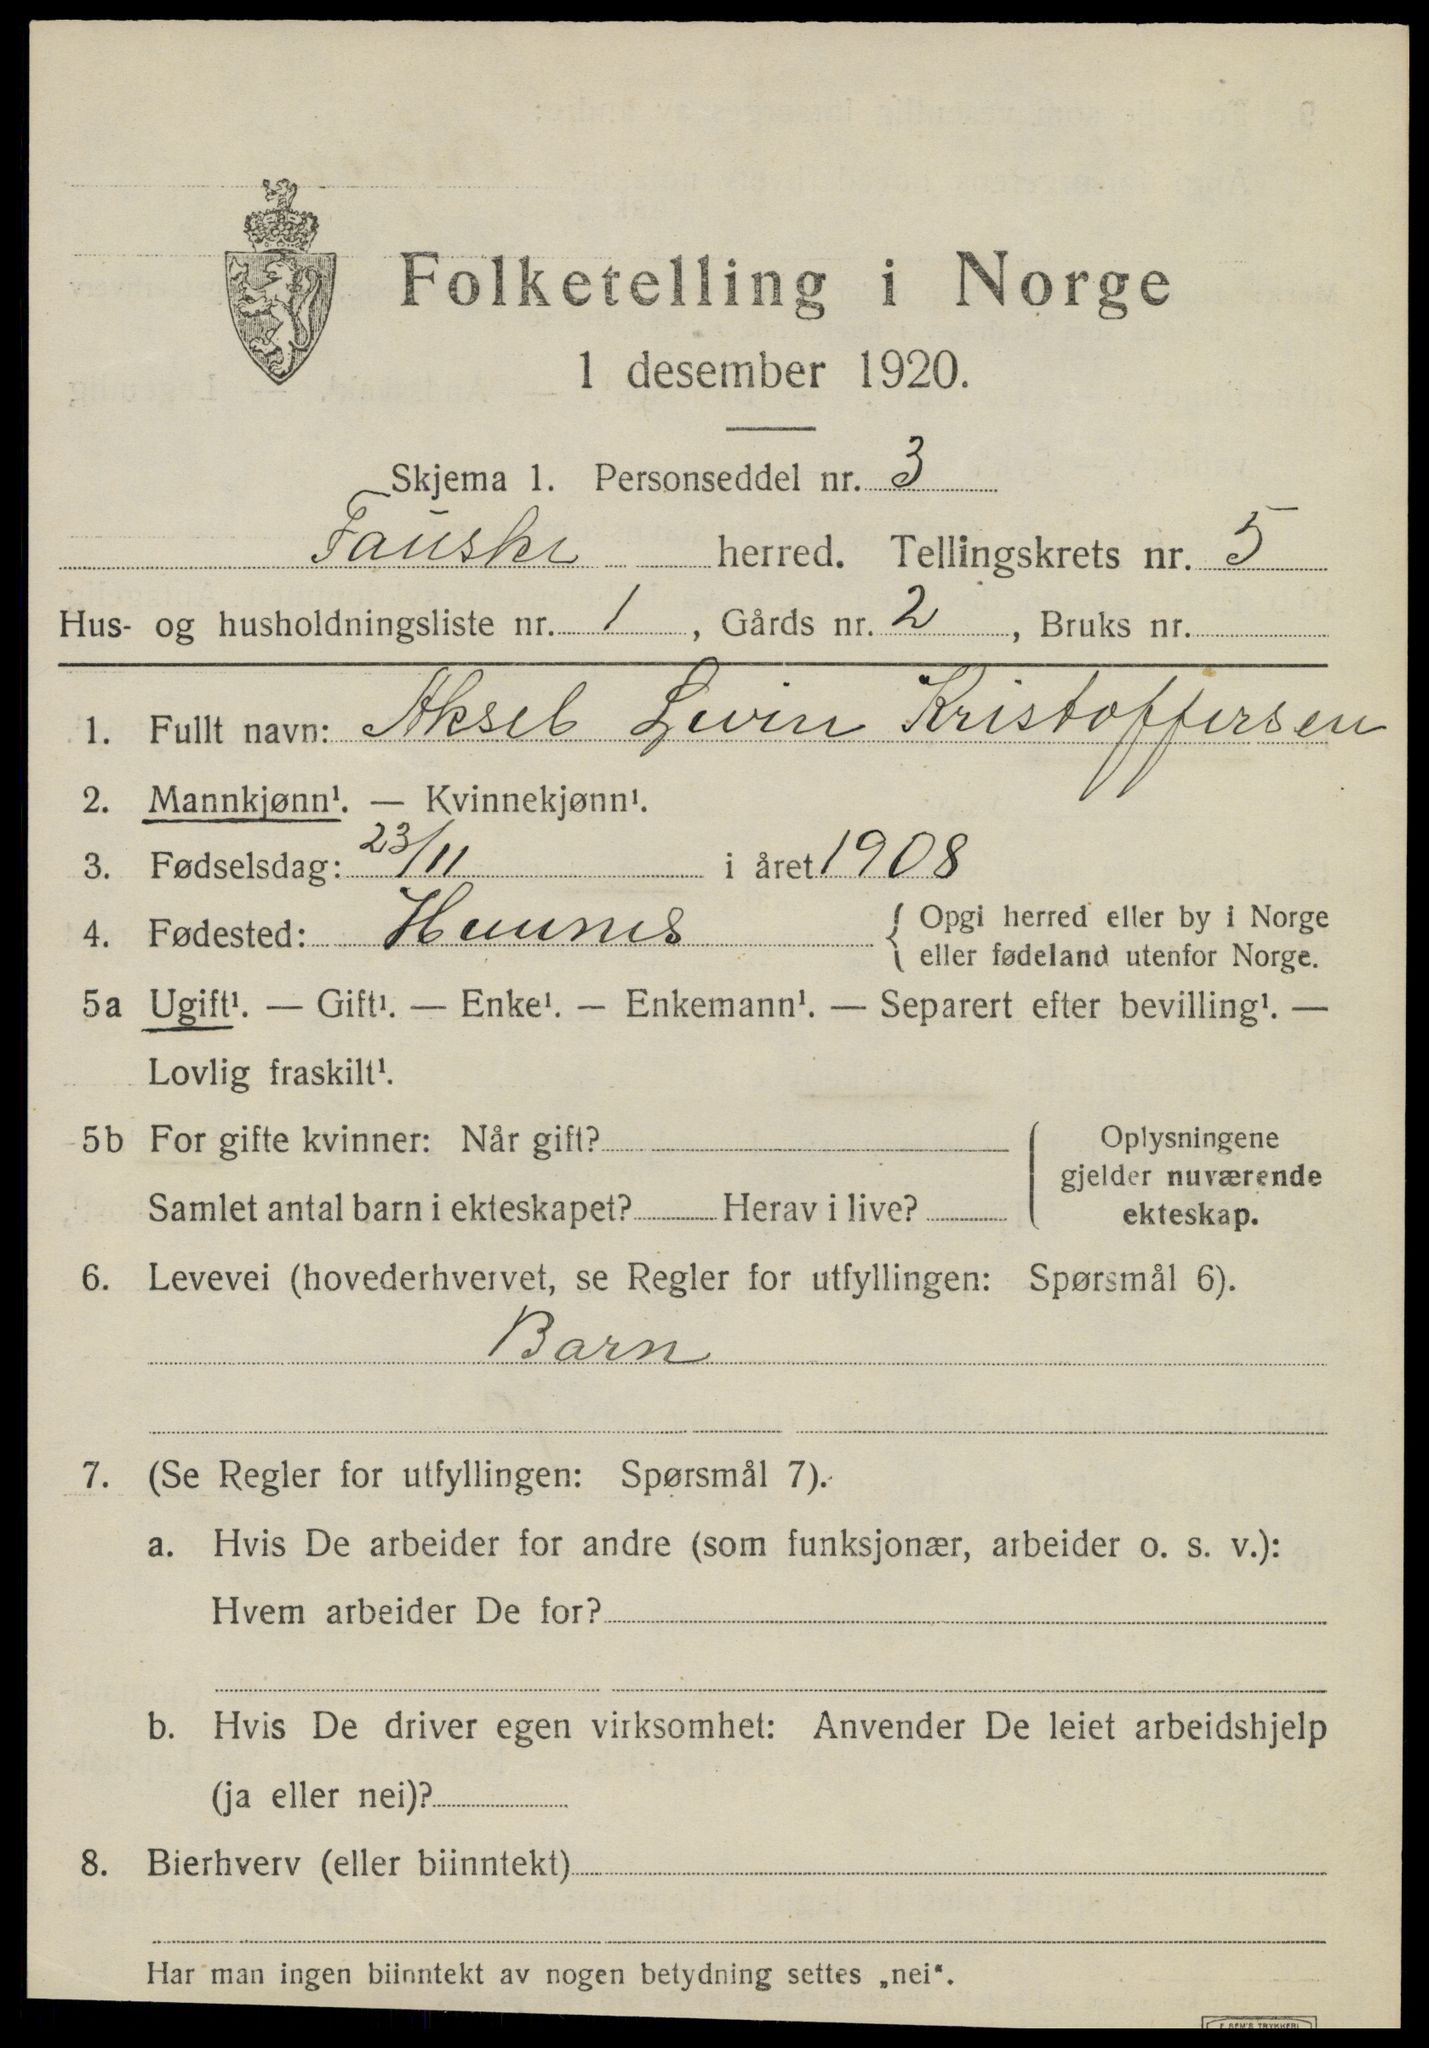 Folketelling i Norge
1 desember 1920.
Skjema 1. Personseddel nr. 3
Fauske herred. Tellingskrets nr. 5
Hus- og husholdningsliste nr. 1, Gårds nr. 2, Bruks nr.
1. Fullt navn: Aksel Levin Kristoffersen
2. Mannkjønn¹. — Kvinnekjønn¹.
3. Fødselsdag: 23/11 i året 1908
4. Fødested: { Opgi herred eller by i Norge
eller fødeland utenfor Norge.
5a Ugift¹. — Gift¹. — Enke¹. — Enkemann¹. — Separert efter bevilling¹. —
Lovlig fraskilt¹.
5b For gifte kvinner: Når gift?
Samlet antal barn i ekteskapet? Herav i live?
Oplysningene
gjelder nuværende
ekteskap.
6. Levevei (hovederhvervet, se Regler for utfyllingen: Spørsmål 6).
Barn
7. (Se Regler for utfyllingen: Spørsmål 7).
a. Hvis De arbeider for andre (som funksjonær, arbeider o. s. v.):
Hvem arbeider De for?
b. Hvis De driver egen virksomhet: Anvender De leiet arbeidshjelp
(ja eller nei)?
8. Bierhverv (eller biinntekt)
Har man ingen biinntekt av nogen betydning settes „nei“.